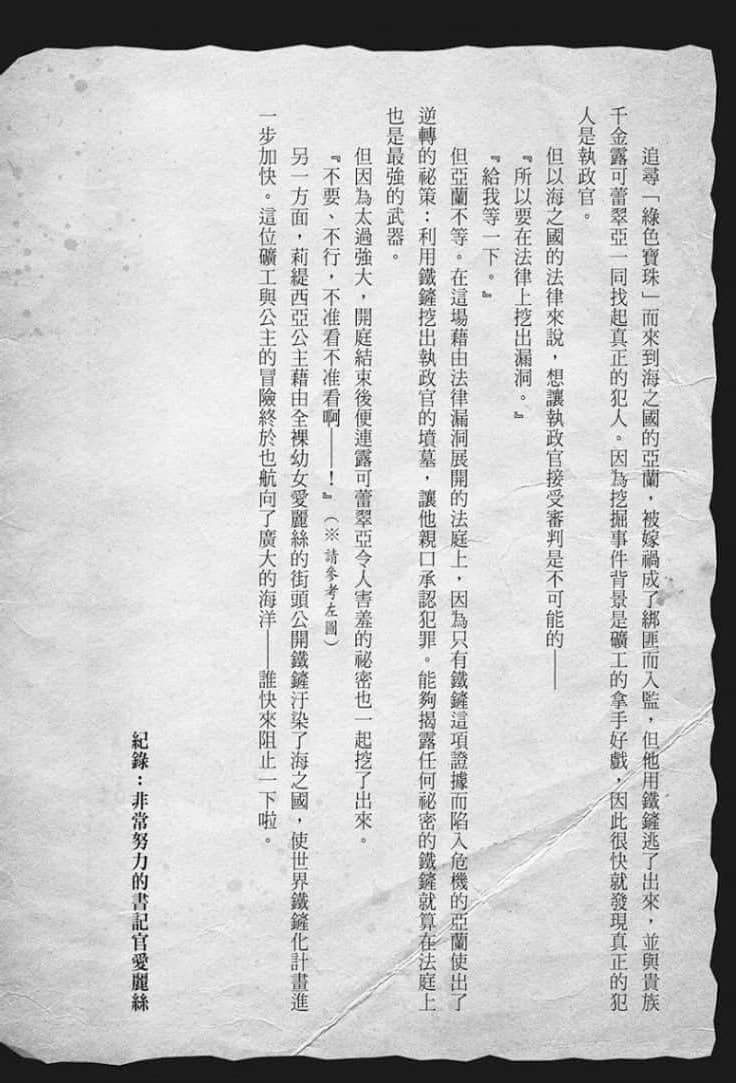 追尋「綠色寶珠」而來到海之國的亞蘭，被嫁禍成了綁匪而入監，但他用鐵鏟逃了出來，並與貴族
千金露可蕾翠亞一同找起真正的犯人。因為挖掘事件背景是礦工的拿手好戲，因此很快就發現真正的犯
人是執政官。
但以海之國的法律來說，想讓執政官接受審判是不可能的——
『所以要在法律上挖出漏洞。』
『給我等一下。』
但亞蘭不等。在這場藉由法律漏洞展開的法庭上，因為只有鐵鏟這項證據而陷入危機的亞蘭使出了
逆轉的祕策：利用鐵鏟挖出執政官的墳墓，讓他親口承認犯罪。能夠揭露任何祕密的鐵鏟就算在法庭上
也是最強的武器。
但因為太過強大，開庭結束後便連露可蕾翠亞令人害羞的祕密也一起挖了出來。
『不要、不行，不准看不准看啊——！』（※請參考左圖）
另一方面，莉緹西亞公主藉由全裸幼女愛麗絲的街頭公開鐵鏟汙染了海之國，使世界鐵鏟化計畫進
一步加快。這位礦工與公主的冒險終於也航向了廣大的海洋——誰快來阻止一下啦。
紀錄：非常努力的書記官愛麗絲